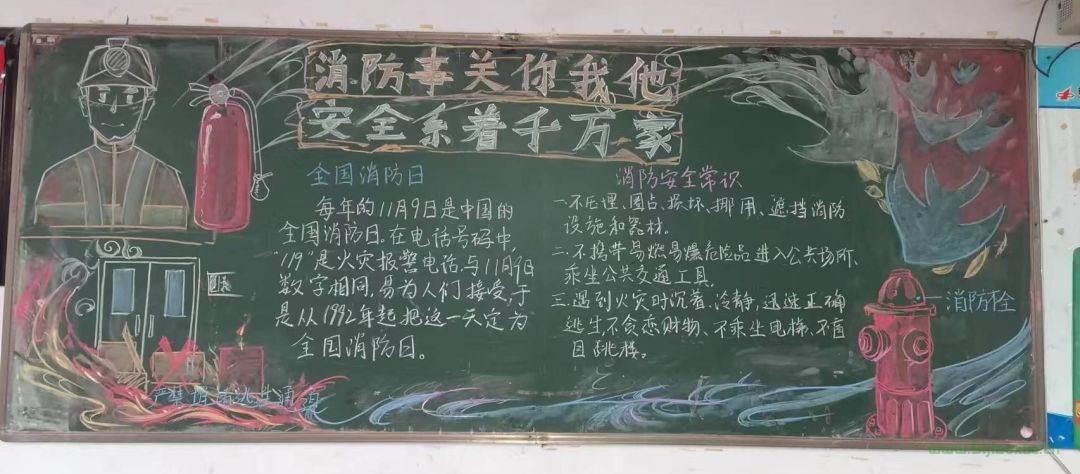 消防事关你我他
安全系着千万家
全国消防日
每年的11月9日是中国的
全国消防日.在电话号码中,
"119"是火灾报警电话,与11月9日
数字相同,易为人们接受,于
是从1992年起把这一天定为
全国消防日。
消防安全常识
一.不压埋、圈占、损坏、挪用、遮挡消防
设施和器材.
二.不携带易燃易爆危险品进入公共场所、
乘坐公共交通工具
三.遇到火灾时沉着、冷静,迅速正确
逃生,不贪恋财物、不乘坐电梯、不盲
目跳楼。
消防栓
严禁堵塞逃生通道